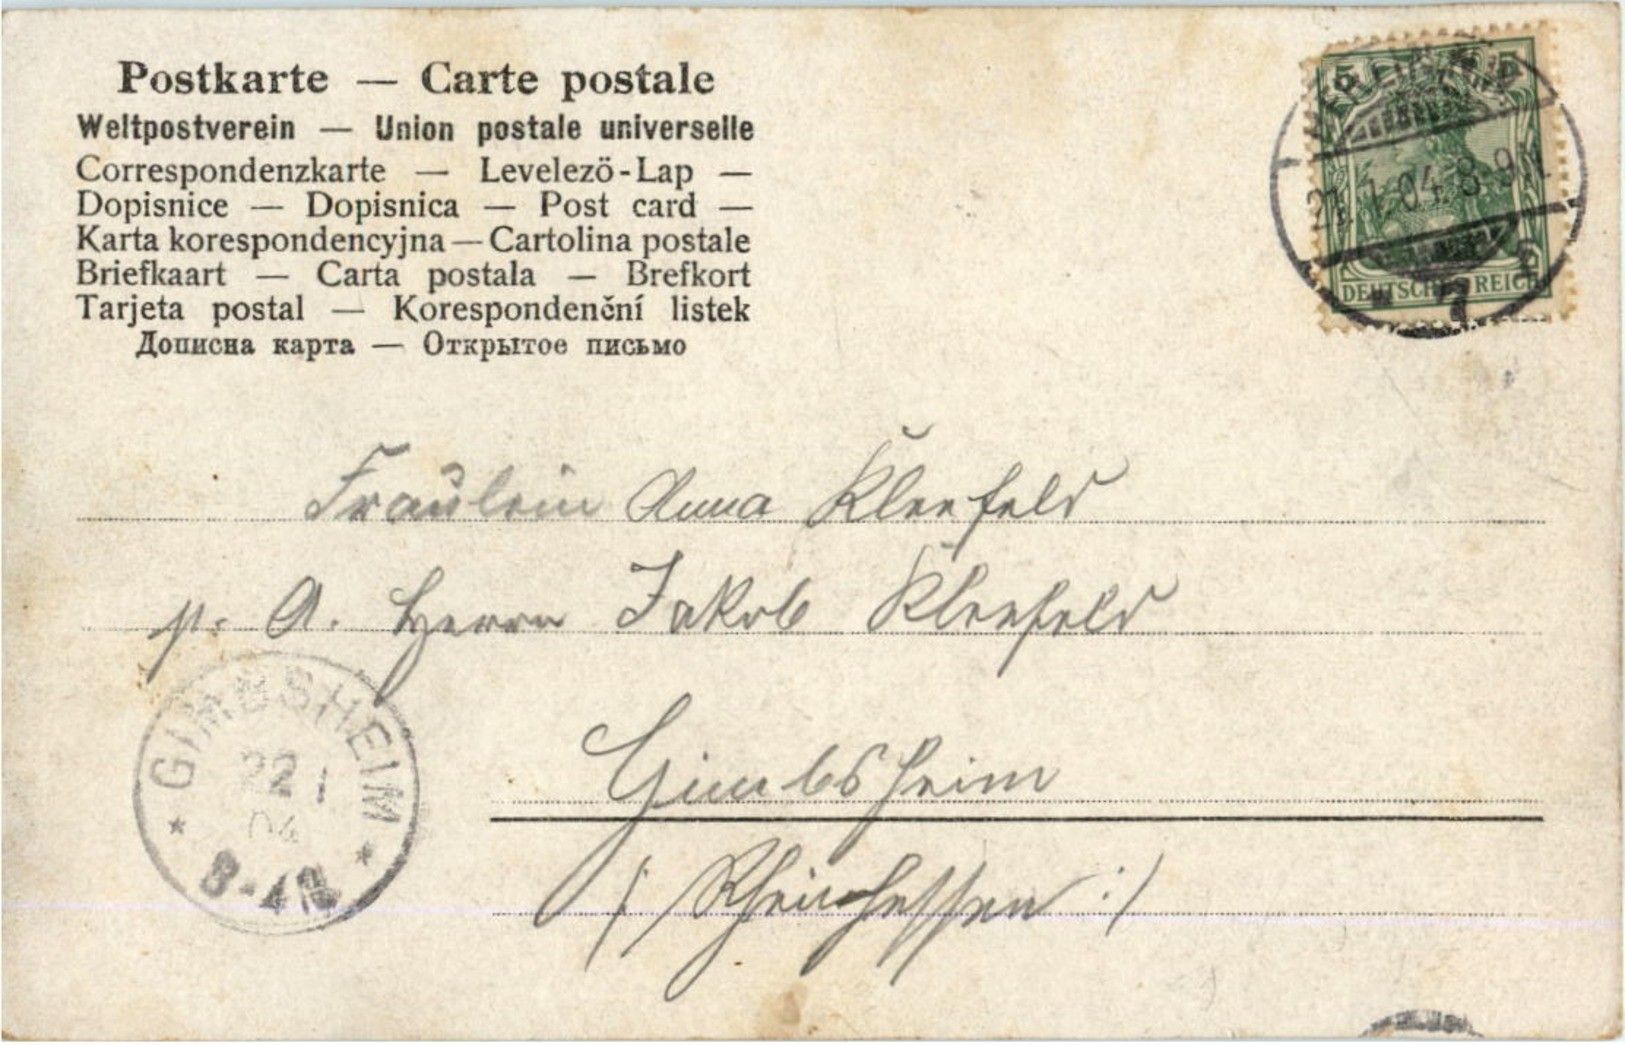 Postkarte — Carte postale
Weltpostverein — Union postale universelle
Correspondenzkarte — Levelezö-Lap —
Dopisnice — Dopisnica — Post card —
Karta korespondencyjna — Cartolina postale
Briefkaart — Carta postala — Brefkort
Tarjeta postal — Korespondenční listek
Дописна карта — Открытое письмо
5 5
21.1.04. 8-9N
7
DEUTSCHES REICH
Fräulein Anna Kleefeld
p. A. Herrn Jakob Kleefeld
Gimbsheim
(: Rheinhessen :)
GIMBSHEIM
22 1
04